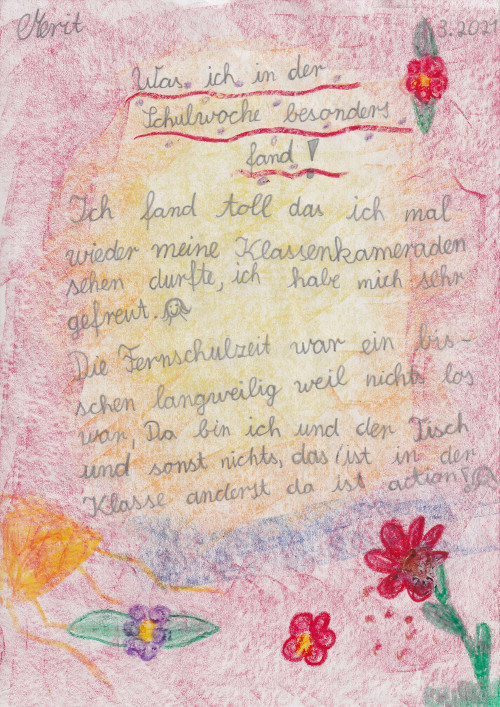 Merit
3.2021
Was ich in der
Schulwoche besonders
fand!
Ich fand toll das ich mal
wieder meine Klassenkameraden
sehen durfte, ich habe mich sehr
gefreut.
Die Fernschulzeit war ein bis-
schen langweilig weil nichts los
war, Da bin ich und der Tisch
und sonst nichts, das ist in der
Klasse anderst da ist action!